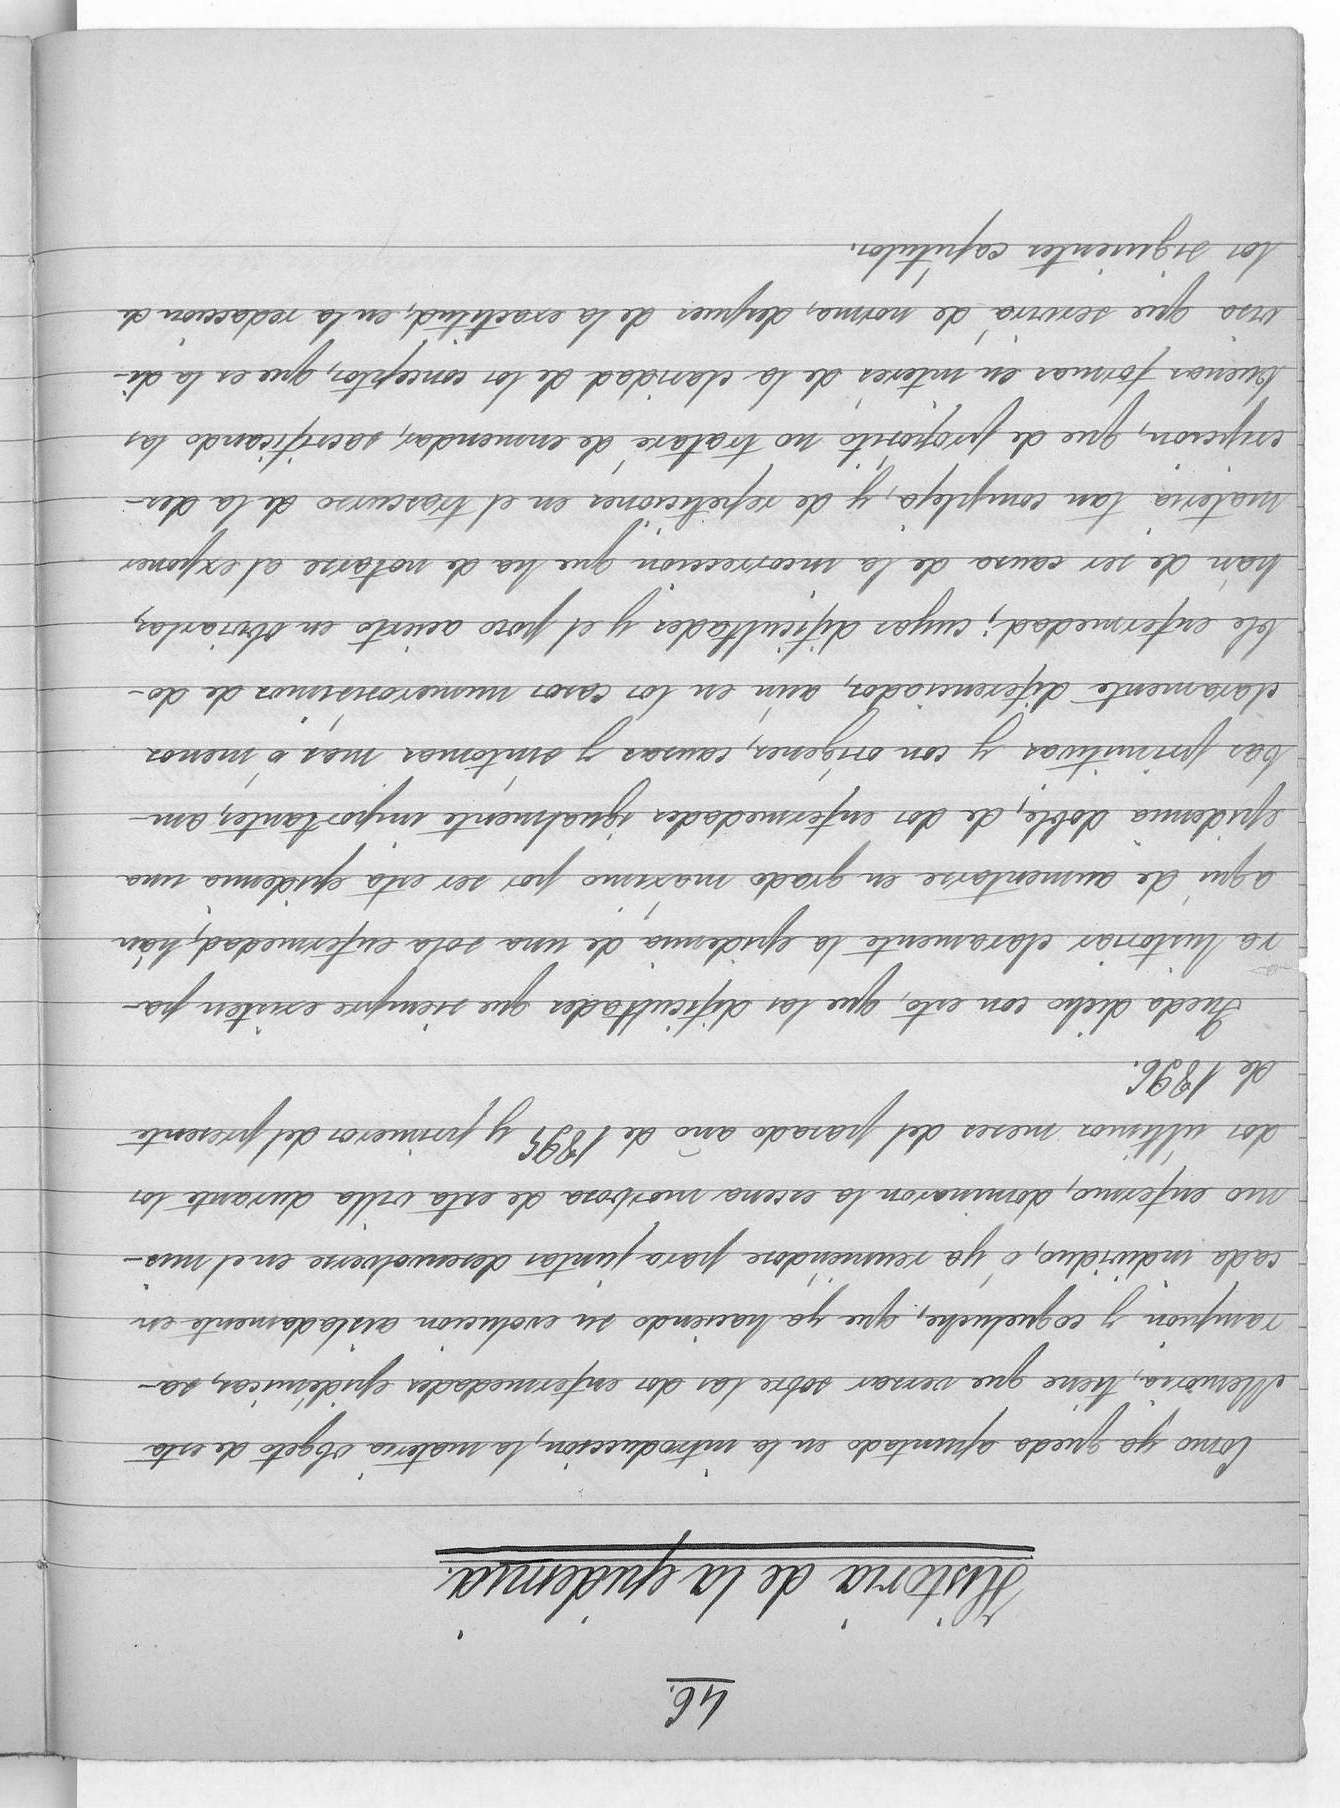 46.
Historia de la epidemia.
Como ya queda apuntado en la introducción, la materia objeto de esta
Memoria, tiene que versar sobre las dos enfermedades epidémicas, sa-
rampion y coqueluche, que ya haciendo su evolucion aisladamente en
cada individuo, ó ya reuniendose para juntas desenvolverse en el mis-
mo enfermo, dominaron la escena morbosa de esta villa durante los
dos últimos meses del pasado año de 1895 y primeros del presente
de 1896.
Queda dicho con esto, que las dificultades que siempre existen pa-
ra historiar claramente la epidemia de una sola enfermedad, han
aqui de aumentarse en grado maximo por ser esta epidemia una
epidemia doble, de dos enfermedades igualmente importantes, am-
bas primitivas y con origenes, causas y sintomas mas ó menos
claramente diferenciados, aún en los casos numerosisimos de do-
ble enfermedad; cuyas dificultades y el poco acierto en obviarlas,
han de ser causa de la incorreccion que ha de notarse al exponer
materia tan compleja, y de repeticiones en el trascurso de la des-
cripcion, que de proposito no trataré de enmendar, sacrificando las
buenas formas en interes de la claridad de los conceptos, que es la di-
visa que servirá de norma, despues de la exactitud, en la redaccion de
los siguientes capitulos.